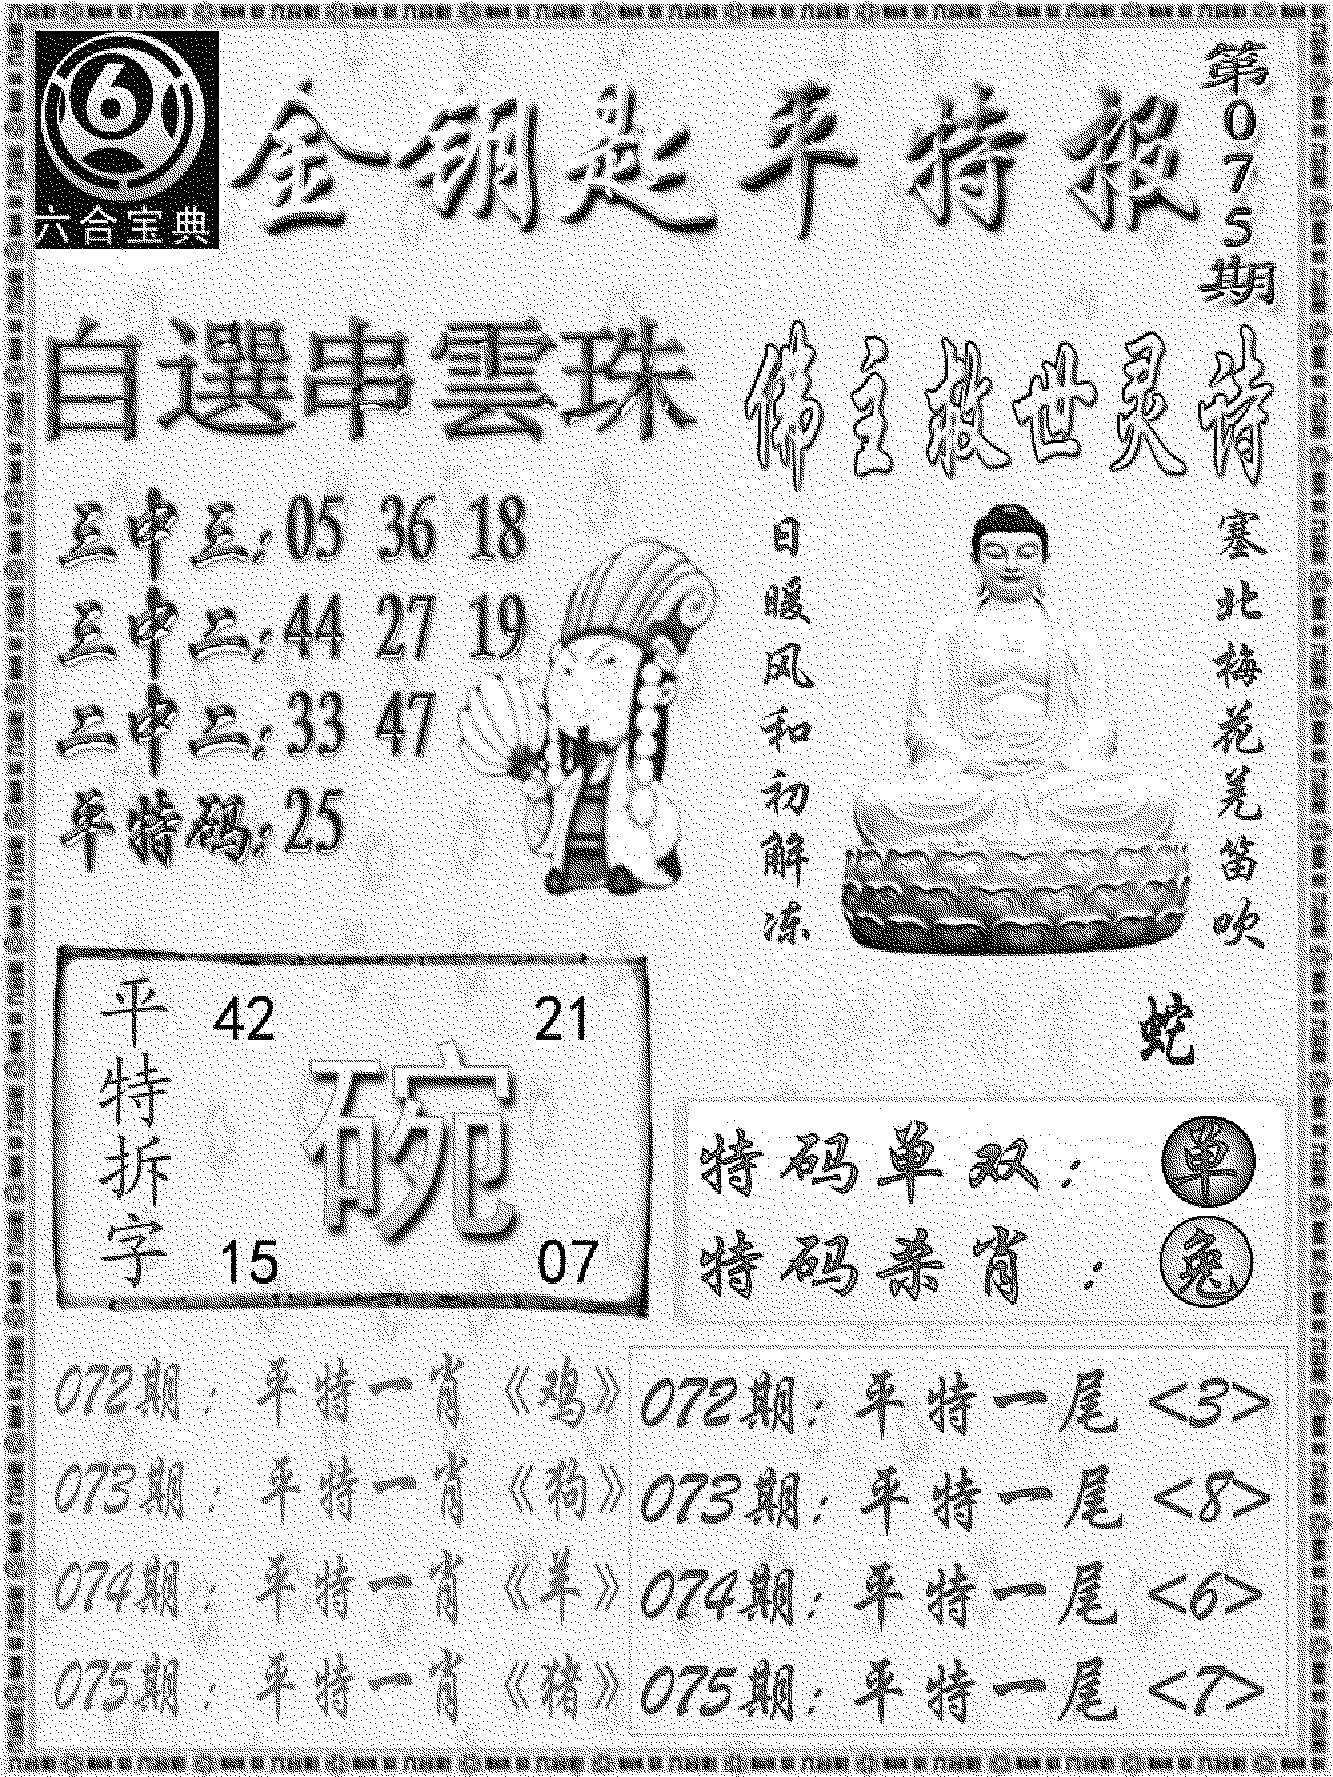 六合宝典
金钥匙平特报
第075期
自選串雲珠
三中三: 05 36 18
三中二: 44 27 19
二中二: 33 47
单特码: 25
佛主救世灵诗
塞北梅花羌笛吹
日暖风和初解冻
蛇
平特拆字
42 21
碗
15 07
特码单双: 单
特码杀肖: 兔
072期: 平特一肖《鸡》
073期: 平特一肖《狗》
074期: 平特一肖《羊》
075期: 平特一肖《猪》
072期: 平特一尾 <3>
073期: 平特一尾 <8>
074期: 平特一尾 <6>
075期: 平特一尾 <7>